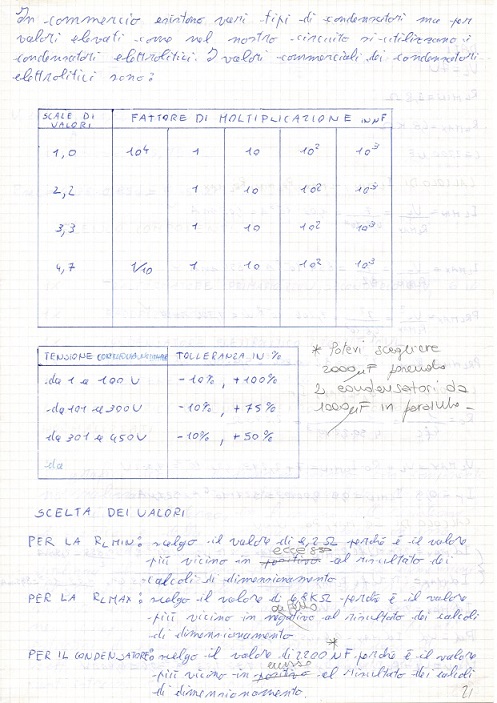 In commercio esistono vari tipi di condensatori ma per
valori elevati come nel nostro circuito si utilizzano i
condensatori elettrolitici. I valori commerciali dei condensatori
elettrolitici sono:
SCALE DI VALORI FATTORE DI MOLTIPLICAZIONE IN µF
1,0 10⁴ 1 10 10² 10³
2,2 1 10 10² 10³
3,3 1 10 10² 10³
4,7 1/10 1 10 10² 10³
TENSIONE CONTINUA NOMINALE TOLLERANZA IN %
da 1 a 100 V -10%, +100%
da 101 a 300 V -10%, +75%
da 301 a 450 V -10%, +50%
da
* Potevi scegliere
2000 µF ponendo
2 condensatori da
1000 µF in parallelo -
SCELTA DEI VALORI
PER LA RLMIN: scelgo il valore di 8,2 Ω perché è il valore
eccesso
più vicino in positivo al risultato dei
calcoli di dimensionamento
PER LA RLMAX: scelgo il valore di 6,8 KΩ perché è il valore
difetto
più vicino in negativo al risultato dei calcoli
di dimensionamento
*
PER IL CONDENSATORE: scelgo il valore di 2200 µF perché è il valore
eccesso
più vicino in positivo al risultato dei calcoli
di dimensionamento.
21